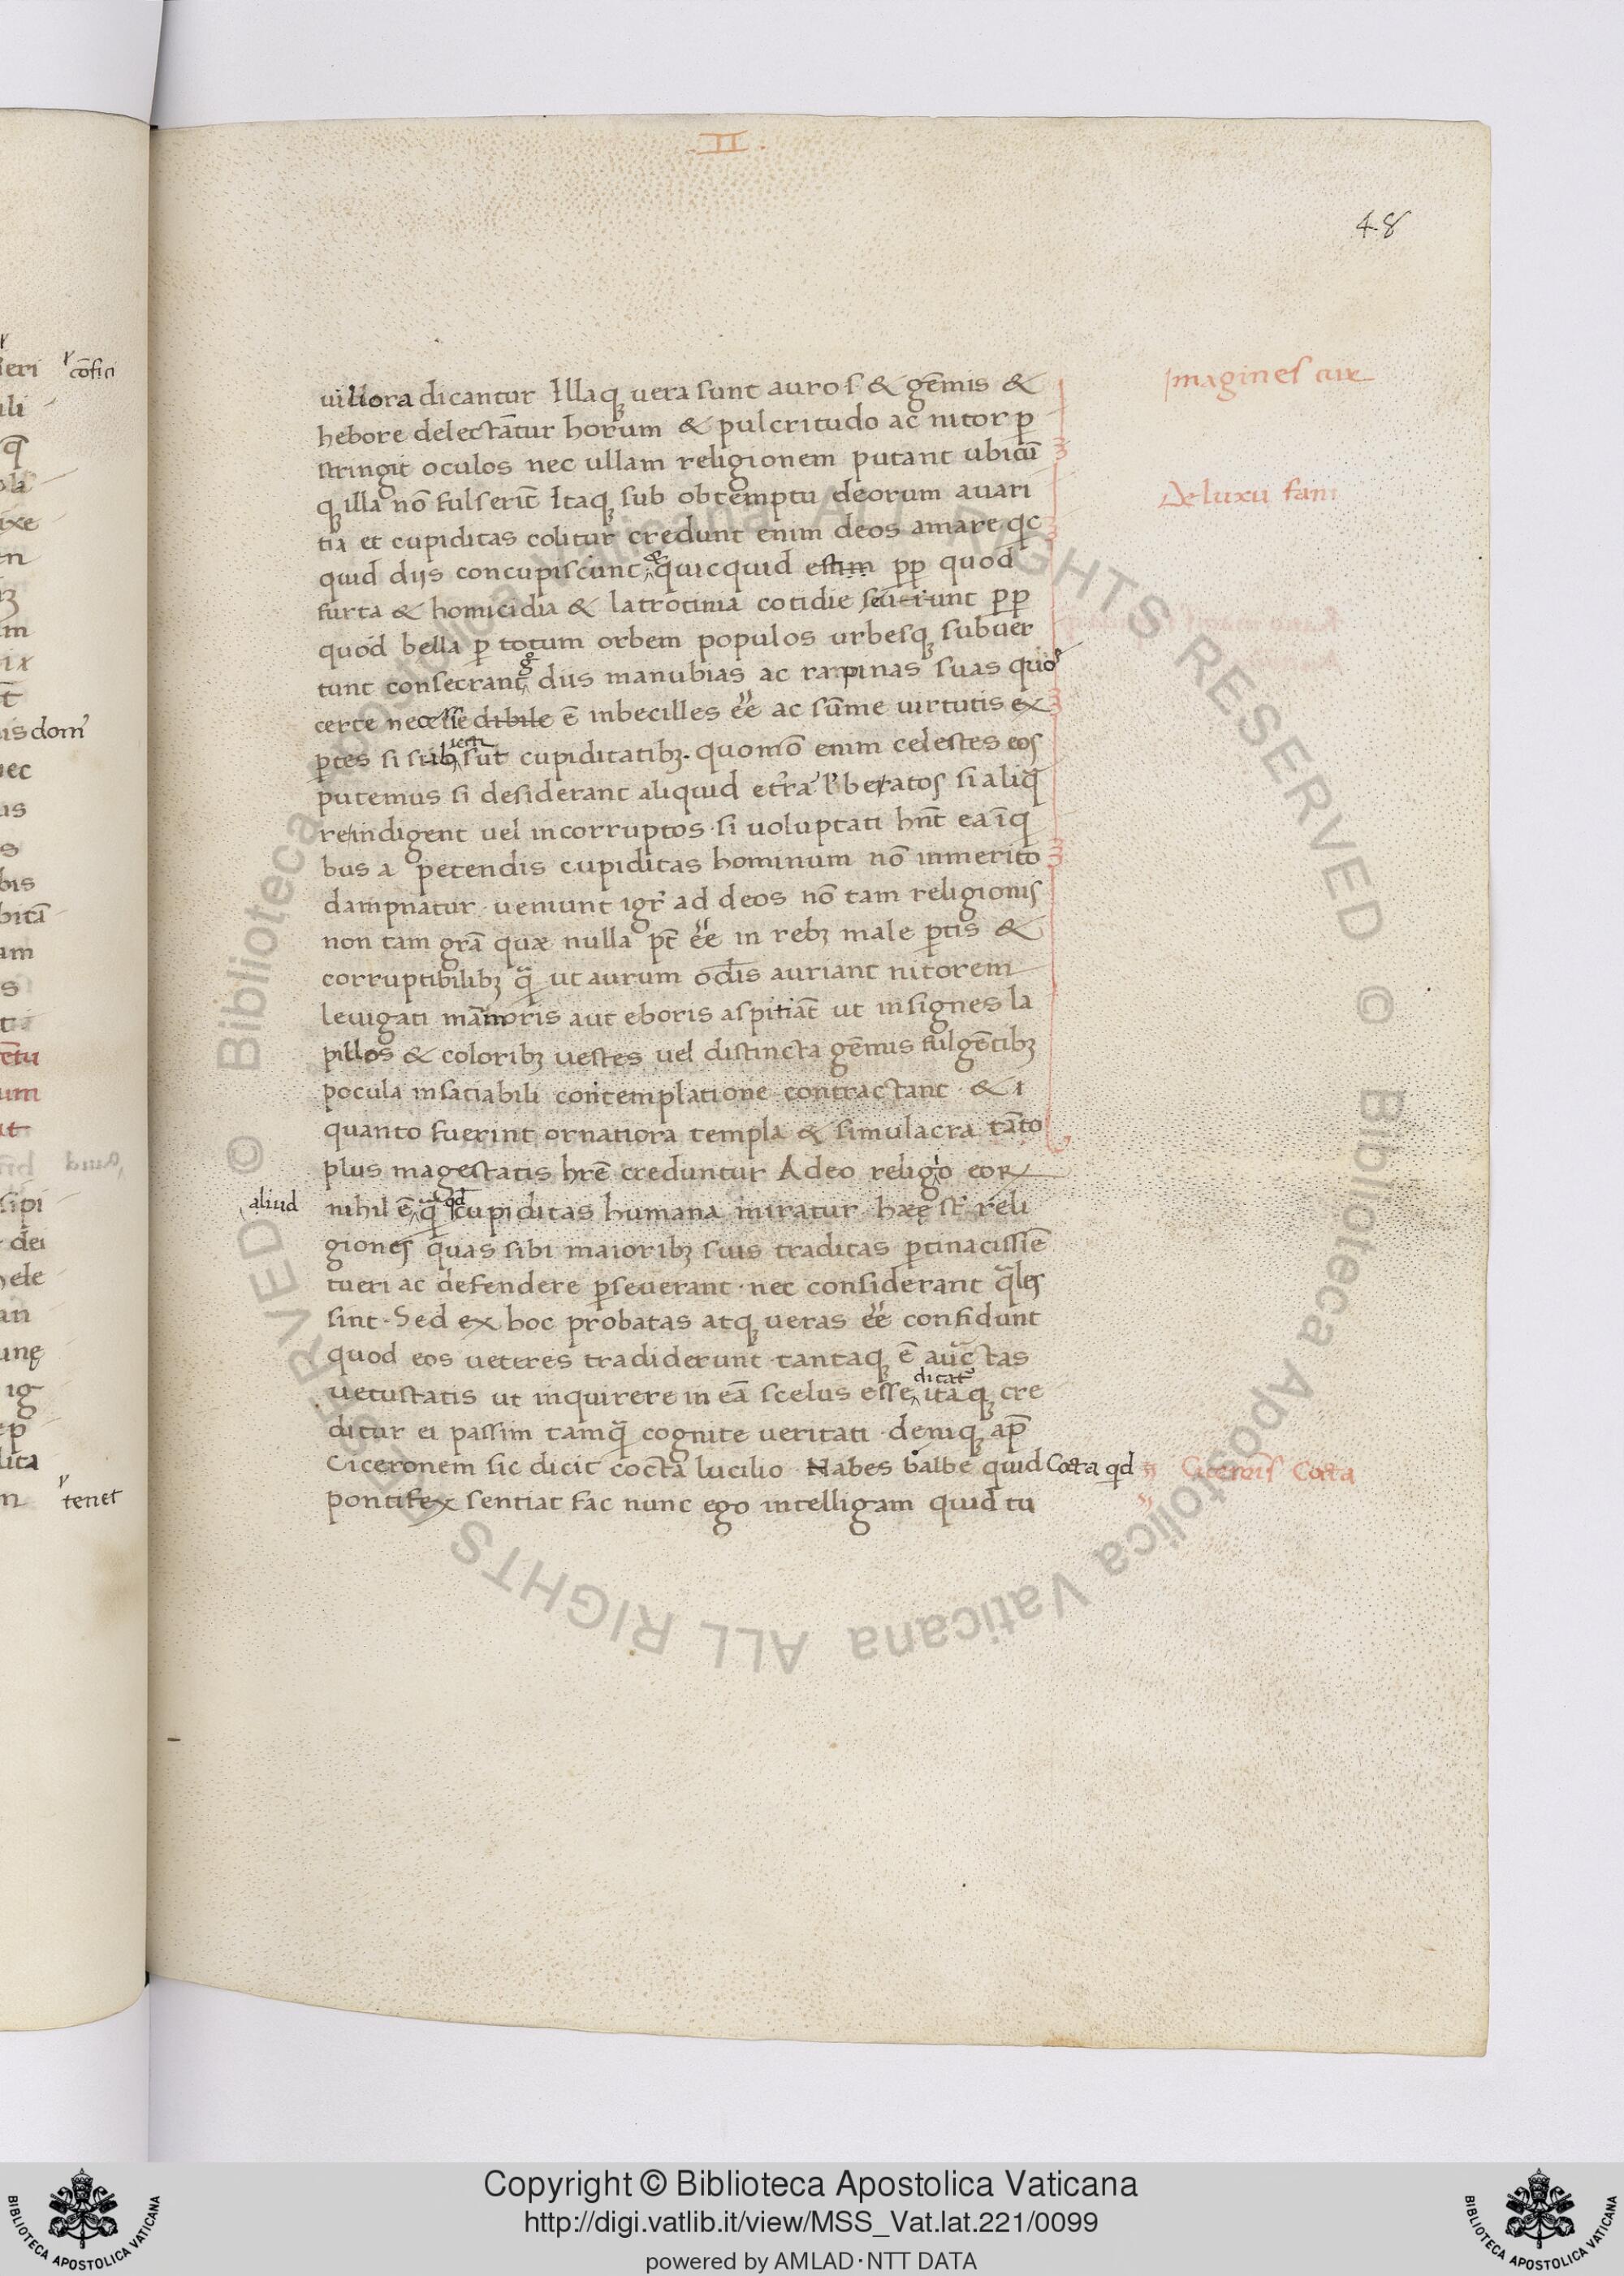 .II.
48
uiliora dicantur Illaq; uera sunt auro s. & gēmis &
Imagines aure
hebore delectātur horum & pulcritudo ac nitor p̱
stringit oculos nec ullam religionem putant ubicū
q; illa nō fulserīt Itaq; sub obtemptu deorum auari
De luxu fani
tia et cupiditas colitur credunt enim deos amare qc
quid diis concupiscunt & quicquid est im pp quod
furta & homicidia & latrocinia cotidie seuiunt pp
quod bella p̱ totum orbem populos urbesq; subuer
tunt consecrant g° diis manubias ac rapinas suas quos
certe necesse dibile ē inbecilles eē ac sūme uirtutis ex
ptes si subiecti sūt cupiditatib;. quomō enim celestes eos
putemus si desiderant aliquid et̄ra ł beatos si aliq̄
re indigent uel incorruptos si uoluptati hn̄t ea īq
bus a petendis cupiditas hominum nō inmerito
dampnatur. ueniunt igr̄ ad deos nō tam religionis
non tam grā quæ nulla pt̄ eē in reb; male ptis &
corruptibilib; q̄ ut aurum od̄is auriant nitorem
leuigati mārmoris aut eboris aspitiāt ut insignes la
pillos & colorib; uestes uel distincta gēmis fulgētib;
pocula insatiabili contemplatione contractant. & i
quanto fuerint ornatiora templa & simulacra tāto
plus magestatis hr̄e creduntur Adeo religio eoꝝ
aliud
nihil ē q̄ qd̄ cupiditas humana miratur. hæę st̄ reli
giones quas sibi maiorib; suis traditas ptinacissīe
tueri ac defendere pseuerant. nec considerant q̄les
sint. Sed ex hoc probatas atq; ueras eē confidunt
quod eos ueteres tradiderunt. tantaq; ē auc̄tas
uetustatis ut inquirere in eā scelus esse dicat̄ itaq; cre
ditur ei passim tamq̄ cognite ueritati. deniq; ap̄
Ciceronem sic dicit cocta lucilio. Habes balbe quid Cocta qd
Ciceronis Cocta
pontifex sentiat fac nunc ego intelligam quid tu
cōfici
dom̄
tenet
Copyright © Biblioteca Apostolica Vaticana
http://digi.vatlib.it/view/MSS_Vat.lat.221/0099
powered by AMLAD·NTT DATA
BIBLIOTECA APOSTOLICA VATICANA
BIBLIOTECA APOSTOLICA VATICANA
© Biblioteca Apostolica Vaticana ALL RIGHTS RESERVED © Biblioteca Apostolica Vaticana ALL RIGHTS RESERVED